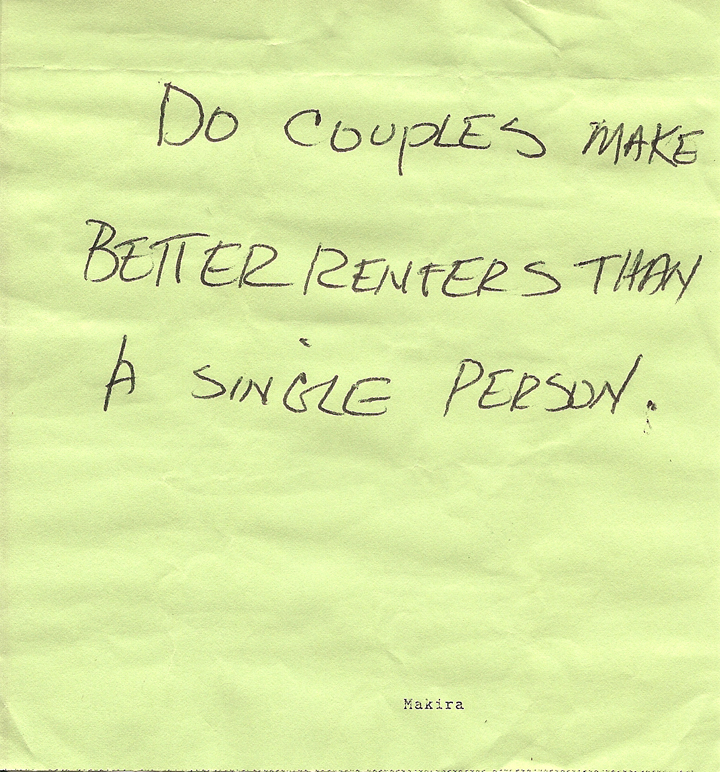 DO COUPLES MAKE
BETTER RENTERS THAN
A SINGLE PERSON.
Makira